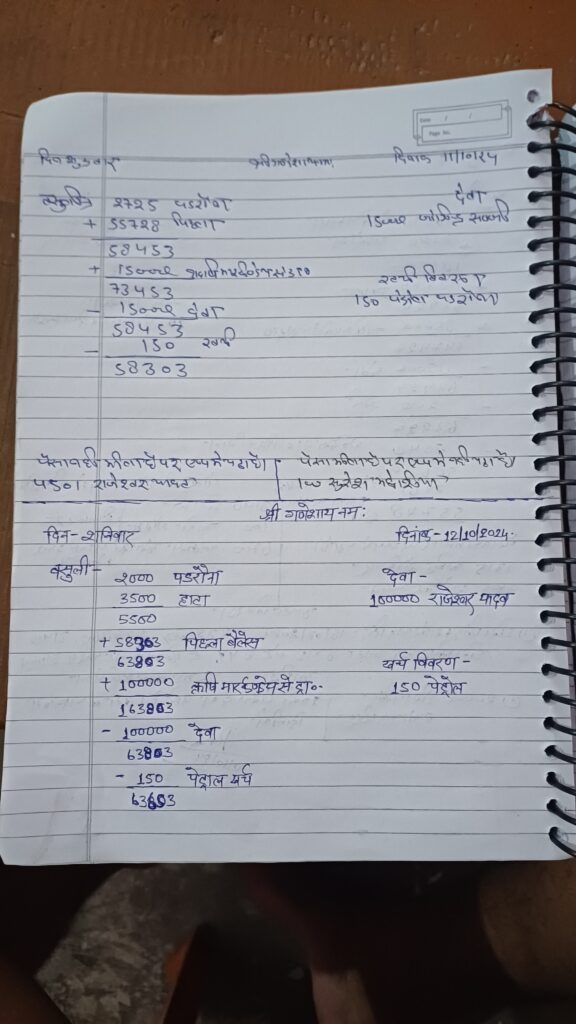 Date / /
Page No.
दिन शुक्रवार श्री गणेशाय नमः दिनांक 11/10/24
वसुली 2725 पडरौना देवा
+ 55728 पिछला 15000
58453
+ 15000
73453 खर्च विवरण
- 15000 देवा 150 पेट्रोल पडरौना
58453
- 150 खर्च
58303
पैसा नहीं मिला है पर एप्प मे चढा है। पैसा मिला है पर एप्प मे नही चढा है।
राजेश्वर यादव
श्री गणेशाय नम:
दिन- शनिवार दिनांक- 12/10/2024.
वसुली- 2000 पडरौना देवा -
3500 हाटा 100000 राजेश्वर यादव
5500
+ 58303 पिछला बैलेंस
63803 खर्च विवरण-
+ 100000 कृषि मार्ट 150 पेट्रोल
163803
- 100000 देवा
63803
- 150 पेट्रोल खर्च
63653